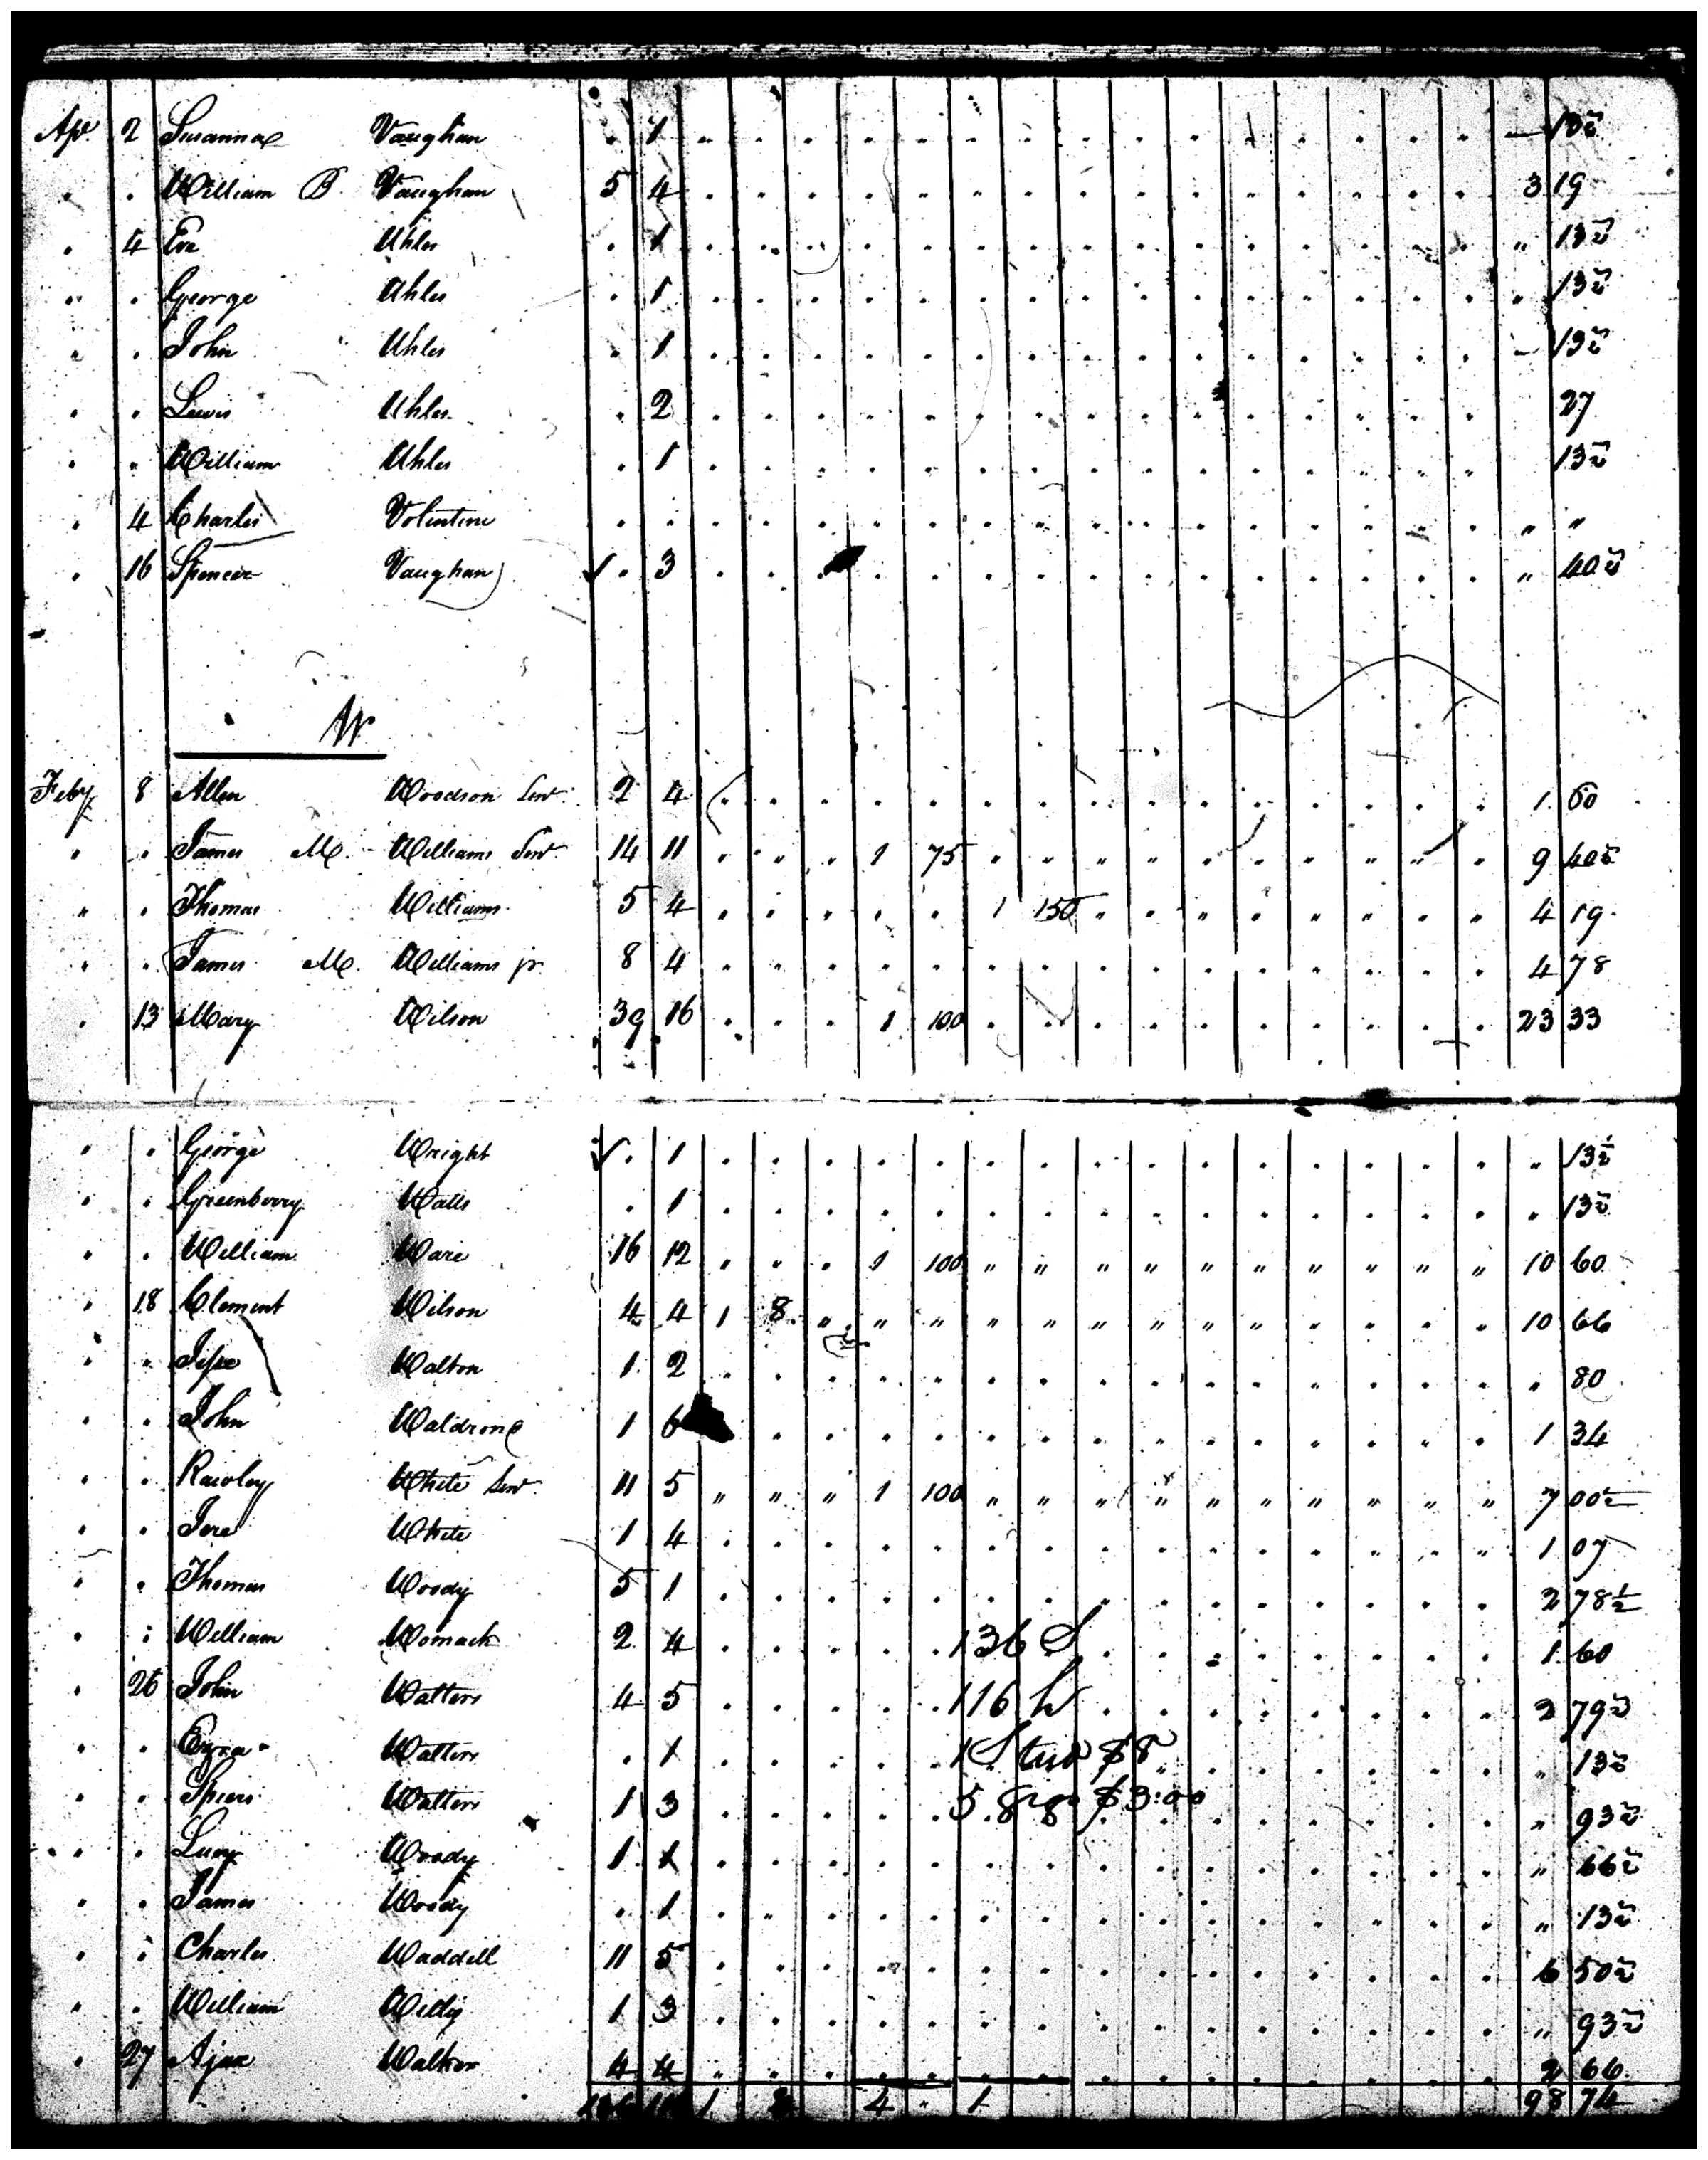 Ap. 2 Susanna Vaughan . 1 13½
" . William B Vaughan 5 4 3 19
. 4 Eva Uhles . 1 " 13½
" . George Uhles . 1 " 13½
" . John Uhles . 1 13½
. . Lewis Uhles . 2 27
. " William Uhles . 1 13½
. 4 Charles Volentine . . " "
. 16 Spencer Vaughan . 3 " 40½
W
Feby 8 Allen Woodson Senr. 2 4 1 60
" . James M. Williams Senr. 14 11 1 75 9 40½
" . Thomas Williams 5 4 1 150 4 19
" . James M. Williams jr. 8 4 4 78
. 13 Mary Wilson 39 16 1 100 23 33
" . George Wright . 1 " 13½
" . Greenberry Walls . 1 " 13½
" . William Ware 16 12 1 100 10 60
" 18 Clement Wilson 4 4 1 8 10 66
" " Jesse Walton 1 2 " 80
" . John Waldrone 1 6 1 34
" . Rawley White Senr. 11 5 1 100 7 00½
" . Jere White 1 4 1 07
" . Thomas Woody 5 1 2 78½
" . William Womack 2 4 136 S 1 60
. 26 John Watters 4 5 116 h 2 79½
" . Ezra Watters . 1 1 Stud $8 " 13½
" . Spiers Watters 1 3 5 $3:00 " 93½
" . Lucy Woody 1 1 " 66½
" . James Woody . 1 " 13½
" . Charles Waddill 11 5 6 50½
" . William Willy 1 3 " 93½
. 27 Ajax Walker 4 4 2 66
1 8 4 . 1 98 74